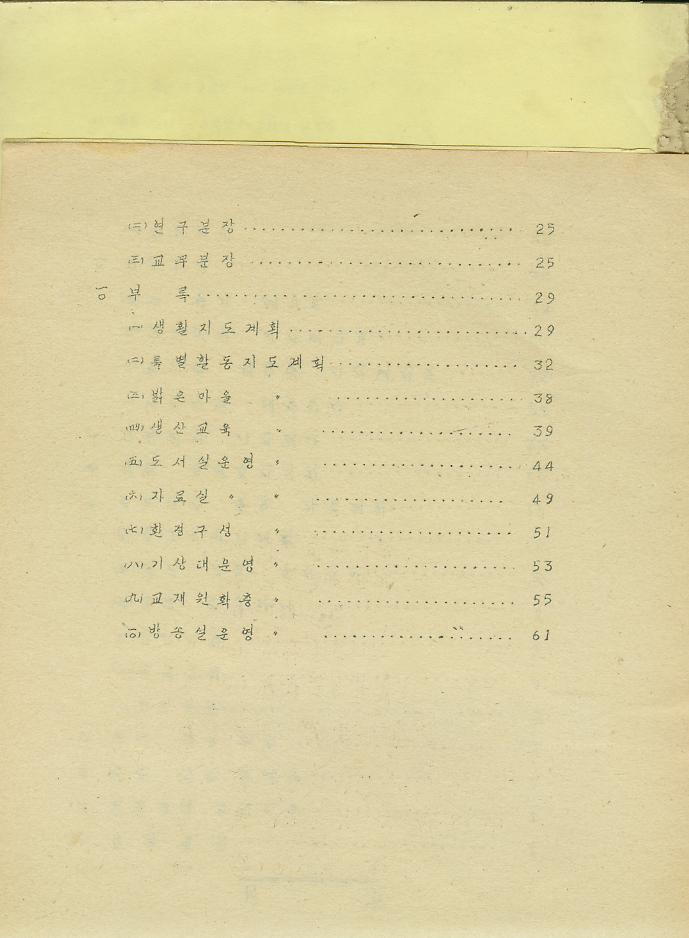 (二) 연구분장 ........................ 25
(三) 교무분장 ........................ 25
一〇 부 록 ........................ 29
(一) 생활지도계획 ........................ 29
(二) 특별활동지도계획 ........................ 32
(三) 밝은마을 〃 ........................ 38
(四) 생산교육 〃 ........................ 39
(五) 도서실운영 〃 ........................ 44
(六) 자료실 〃 〃 ........................ 49
(七) 환경구성 〃 ........................ 51
(八) 기상대운영 〃 ........................ 53
(九) 교재원확충 〃 ........................ 55
(一〇) 방송실운영 〃 ........................ 61